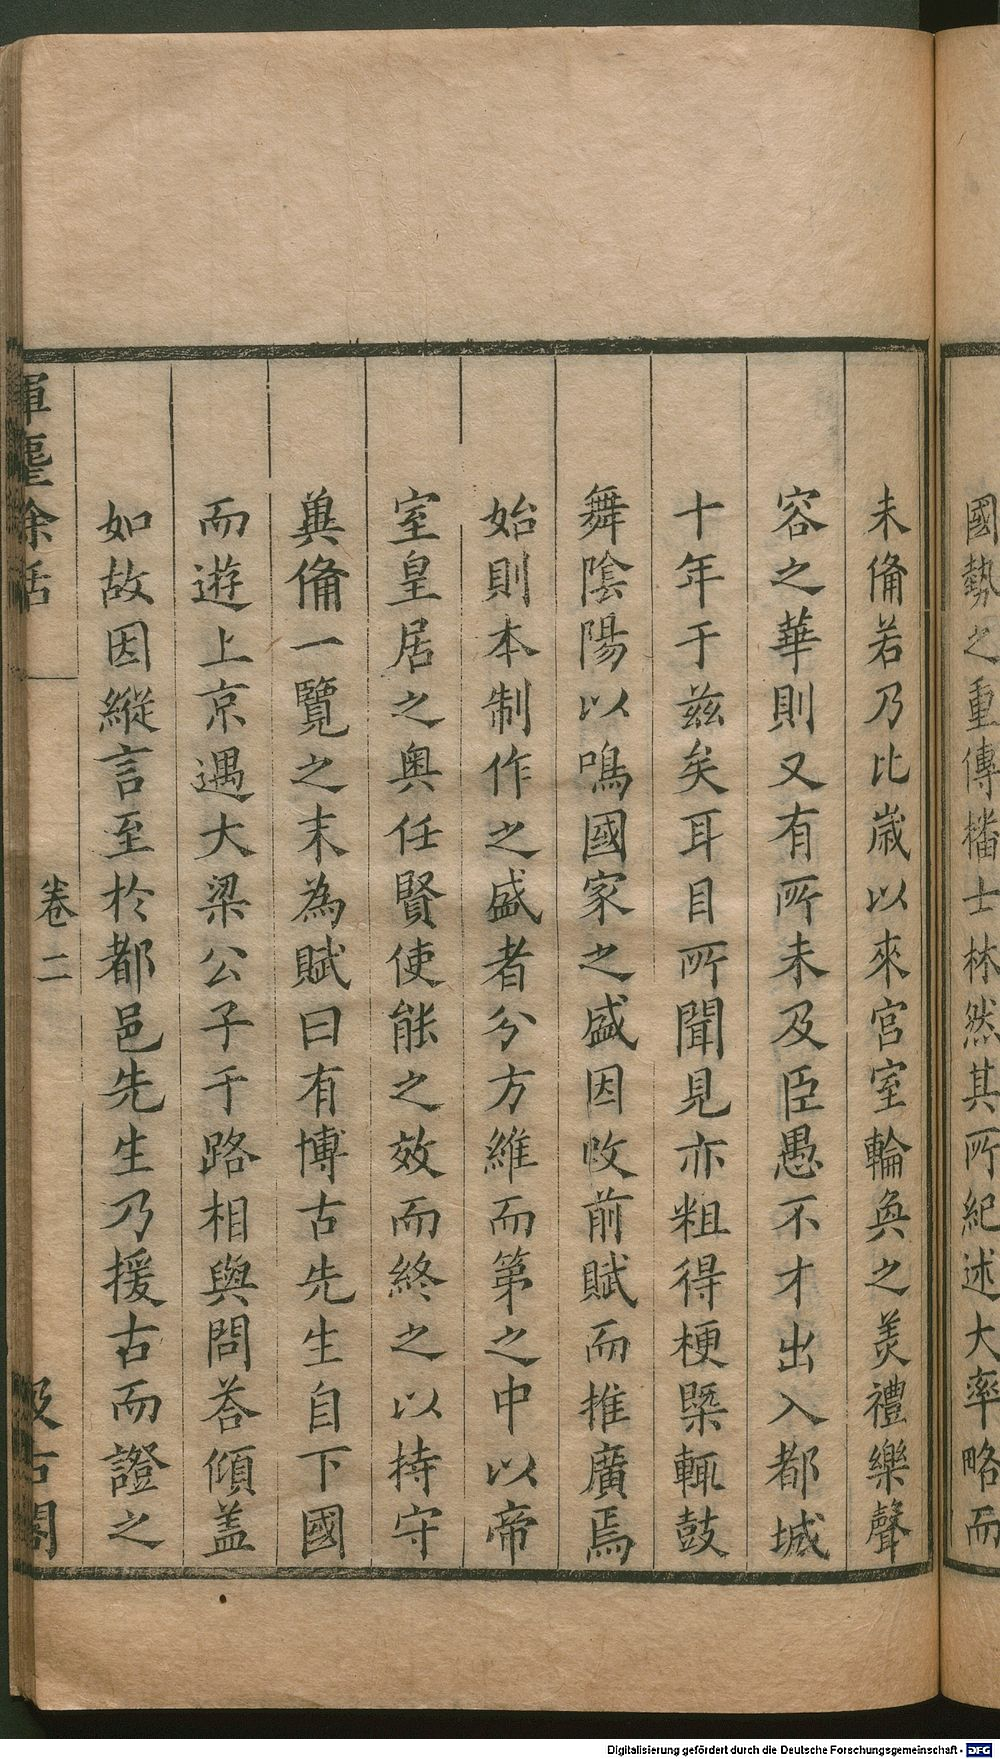 國勢之重傳播士林然其所紀述大率略而
未備若乃比歳以來宫室輪奐之羙禮樂聲
容之華則又有所未及臣愚不才出入都城
十年于兹矣耳目所聞見亦粗得梗槩輒鼓
舞陰陽以鳴國家之盛因攺前賦而推廣焉
始則本制作之盛者分方維而第之中以帝
室皇居之奥任賢使能之效而終之以持守
兾備一覽之末為賦曰有博古先生自下國
而遊上京遇大梁公子于路相與問荅傾盖
如故因縱言至於都邑先生乃援古而證之
揮麈餘話
卷二
汲古閣
Digitalisierung gefördert durch die Deutsche Forschungsgemeinschaft - DFG